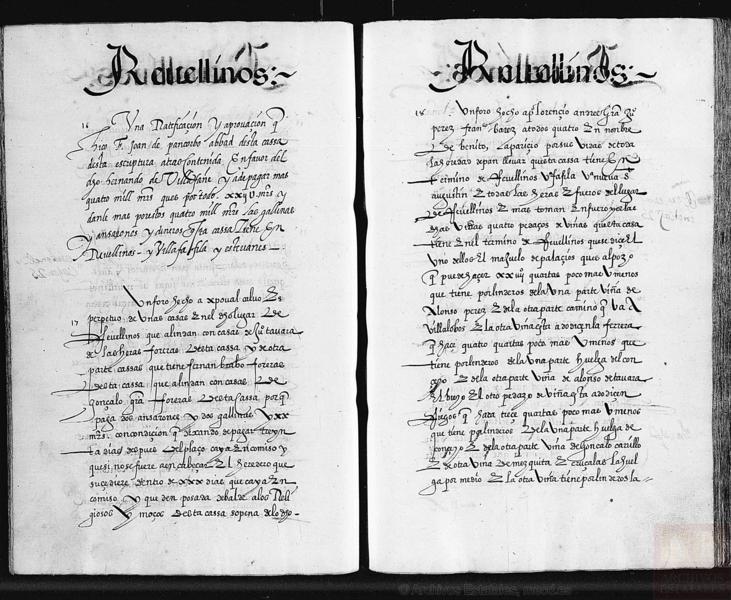 Revellinos:~
16 Una Ratificación y aprovación q̃
hico F. Joan de pancorbo abbad desta cassa
desta escriptura atras contenida, En favor del
dho hernando de Villafañe y a de pagar mas
quatro mill mrs que por todo. xxij U mrs. y
danle mas por estos quatro mill mrs las gallinas
y ansarones y dineros q̃ esta cassa tiene En
Revellinos - y Villafafila y
17 Un foro hecho a xpoval calvo Es
perpetuo de unas casas En el dho lugar De
Revellinos que alindan con casas de Ju° tavara
de las heras foreras Desta cassa y de otra
parte cassas que tiene fernan brabo foreras
desta cassa que alindan con casas De
gonçalo gra foreras Desta cassa por q̃
paga dos ansarones y dos gallinas y xx
mrs. con condiçion q̃ dexando de pagar treyn
ta dias despues Del plaço caya En comiso y
quesi no se fuere a encabeçar El heredero que
sucediere dentro de xxx dias que caya En
comiso y que den posada debalde a los Reli
giosos y moços desta cassa so pena de lo dho-
Revellinos:~
18 Un foro hecho a p° Lorencio
perez fran^co a todos quatro En nonbre
De benito, aparizio por
las llevar questa cassa tiene En
termino de Revellinos
augustin E todas las heras E fueros del lugar
De Revellinos E mas toman En fuero
mas quatro pedaços de viñas questa cassa
tiene En el termino de Revellinos que se dice El
Uno dellos El majuelo de palaçios que
q̃ puede haçer xxiiij quartas poco mas U menos
que tiene por linderos de la Una parte viña de
Alonso perez E de la otra parte camino q̃ va A
villalobos E la otra viña q̃ esta a do diçen la ferrera
q̃ haçe quatro quartas poco mas U menos que
tiene por linderos de la una parte huelga del con
çejo E de la otra parte viña de alonso de tavara
El otro pedazo de viña q̃ esta a do diçen
q̃ hara treçe quartas poco mas U menos
que tiene por linderos De la Una parte huelga de
conçejo E de la otra parte viña de gonçalo carrillo
E de otra viña De mezquita E la huel
ga por medio E la otra viña tiene por linderos la
© Archivos Estatales, mecd.es